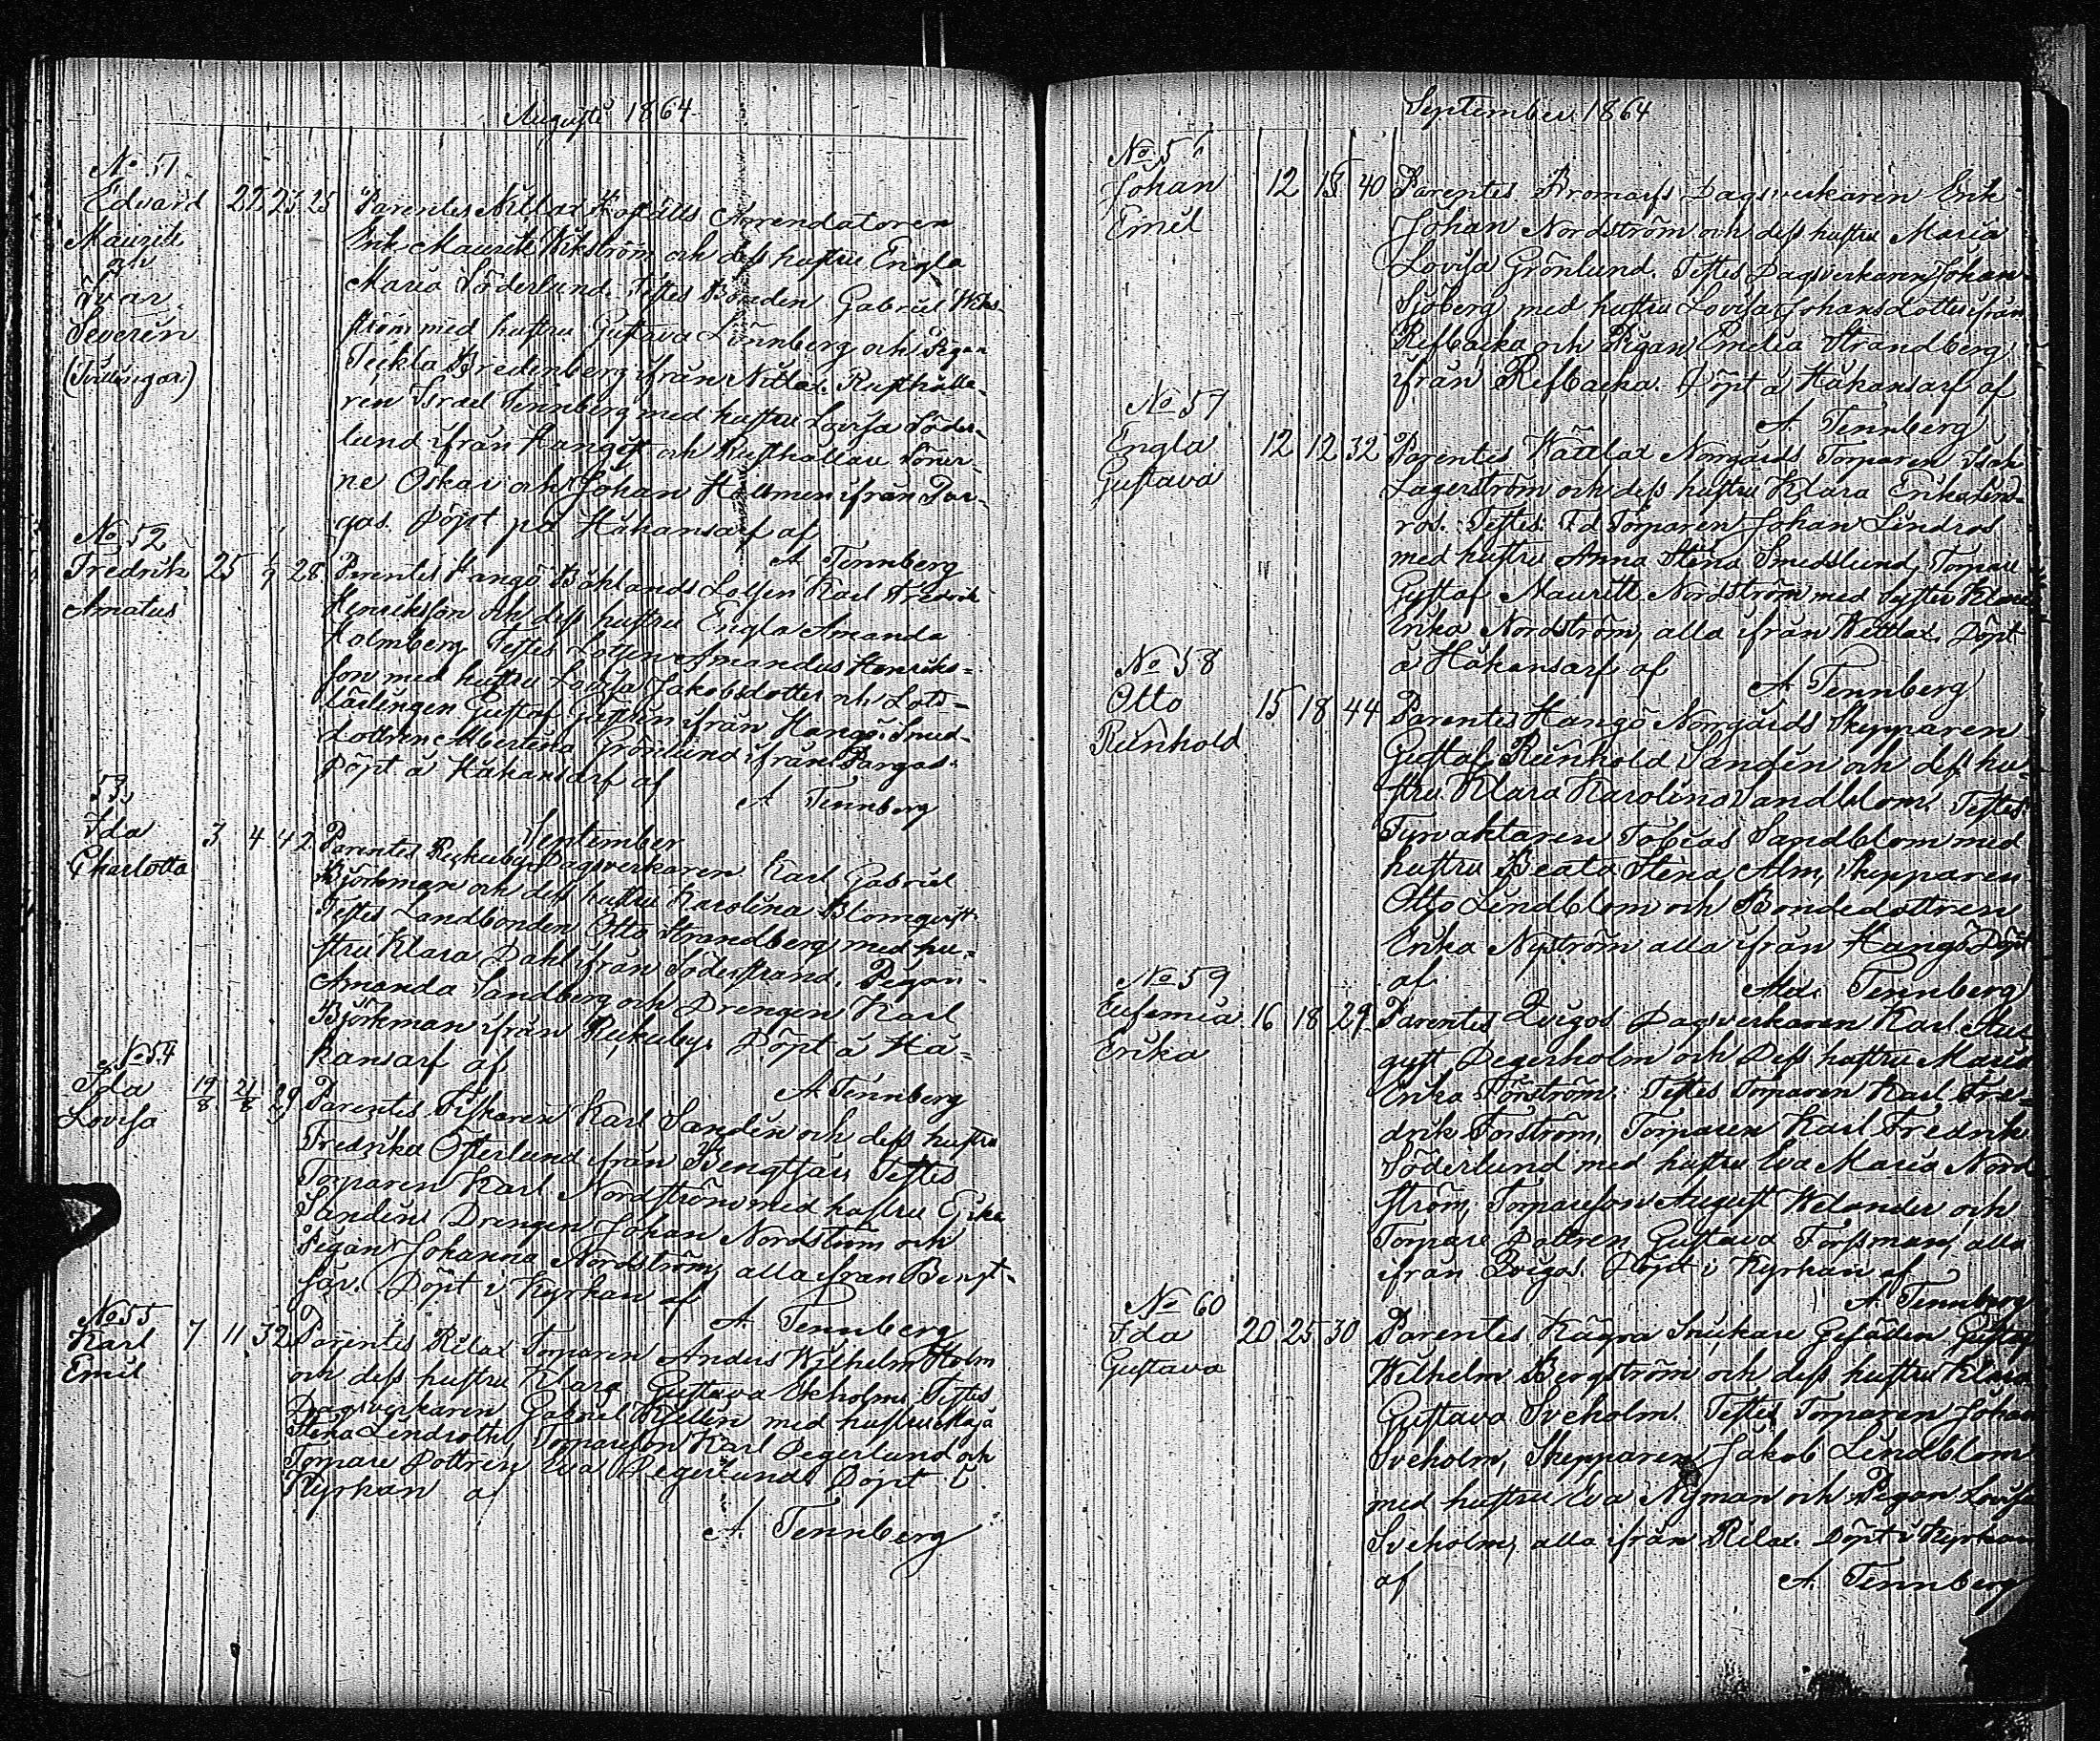 Augusti 1864
No 51.
Edvard 22 23 25 Parentes Nitlax Koställs Arrendatoren
Mauritz Erik Mauritz Wikström och dess hustru Engla
och Maria Söderlund. Testes Bonden Gabriel Wik-
Ivar ström med hustru Gustava Lönnberg och Pigan
Severin Teckla Bredenberg ifrån Nitlax. Rusthålla-
(Tvillingar) ren Israel Tennberg med hustru Lovisa Söder-
lund ifrån Hangö och Rusthållare Söner-
ne Oskar och Johan Hellmen ifrån Par-
gas. Döpt på Håkansarf af
A Tennberg
No 52
Fredrik 25 1/9 28 Parentes Hangö Bählands Lotsen Karl Fredrik
Amatus Henriksson och dess hustru Engla Amanda
Holmberg. Testes Lotsen Amandus Henriks-
son med hustru Lovisa Jakobsdotter och Lots-
lärlingen Gustaf ifrån Hangö. Smed-
dottren Albertina Grönlund ifrån Pargas.
Döpt å Håkansarf af
A Tennberg
53,
September
Ida 3 4 42 Parentes Rekuby Dagsverkaren Karl Gabriel
Charlotta Björkman och dess hustru Karolina Blomqvist.
Testes Landbonden Otto Strandberg med hu-
stru Klara Dahl ifrån Söderstrand. Pigan
Amanda Sandberg och Drengen Karl
Björkman ifrån Rekuby. Döpt å Hå-
kansarf af
A Tennberg
No 54
Ida 19/8 21/8 29 Parentes Fiskaren Karl Sanden och dess hustru
Lovisa Fredrika Österlund ifrån Bengtsår. Testes
Torparen Karl Nordström med hustru
Sanden Drengen Johan Nordström och
Pigan Johanna Nordström, alla ifrån Bengt-
sår. Döpt i Kyrkan af
A. Tennberg
No 55
Karl 7 11 32 Parentes Rilax Torparen Anders Wilhelm Holm
Emil och dess hustru Klara Gustava Ekholm. Testes
Dagsverkaren Gabriel Kjellin med hustru Maja
Stena Lindroth, Torpareson Karl Degerlund och
Torpare Dottren Eva Degerlund. Döpt i
Kyrkan af
A. Tennberg
September 1864
No 56
Johan 12 15 40 Parentes Bromarfs Dagsverkaren Erik
Emil Johan Nordström och dess hustru Maria
Lovisa Grönlund. Testes Dagsverkaren Johan
Sjöberg med hustru Lovisa Johansdotter ifrån
Refbacka och Pigan Emelia Strandberg
ifrån Refbacka. Döpt å Håkansarf af
A Tennberg
No 57
Engla 12 12 32 Parentes Kättlax Norrgårds Torparen Isak
Gustava Lagerström och dess hustru Klara Erika Lind-
ros. Testes. Fd Torparen Johan Lindros
med hustru Anna Stena Smedslund, Torpare
Gustaf Mauritz Nordström med syster Klara
Erika Nordström, alla ifrån Kettlax. Döpt
å Håkansarf af
A Tennberg
No 58
Otto 15 18 44 Parentes Hangö Norrgårds Skepparen
Reinhold Gustaf Reinhold Sanden och dess hu-
stru Klara Karolina Sandblom. Testes
Fyrvaktaren Tobias Sandblom med
hustru Beata Stena Alm, Skepparen
Otto Lindblom och Bondedottren
Erika Nyström alla ifrån Hangö. Döpt
af
Alex. Tennberg
No 59
Eufemia 16 18 29 Parentes Qvigos Dagsverkaren Karl Au-
Erika gust Degerholm och Dess hustru Maria
Erika Forström. Testes Torparen Karl Fre-
drik Forström, Torparen Karl Fredrik
Söderlund med hustru Eva Maria Nord
ström, Torpareson August Welander och
Torpare Dottren Gustava Forssman, alla
ifrån Qvigos. Döpt i Kyrkan af
A. Tennberg
No 60
Ida 20 25 30 Parentes Kägra Snickare Gesällen Gustaf
Gustava Wilhelm Bergström och dess hustru Klara
Gustava Sveholm. Testes Torparen Johan
Sveholm, Skepparen Jakob Lindblom
med hustru Eva Nyman och Pigan Lovisa
Sveholm, alla ifrån Rilax. Döpt i Kyrkan
af
A. Tennberg